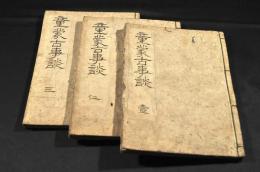 童蒙古事談 壹
童蒙古事談 仁
童蒙古事談 三